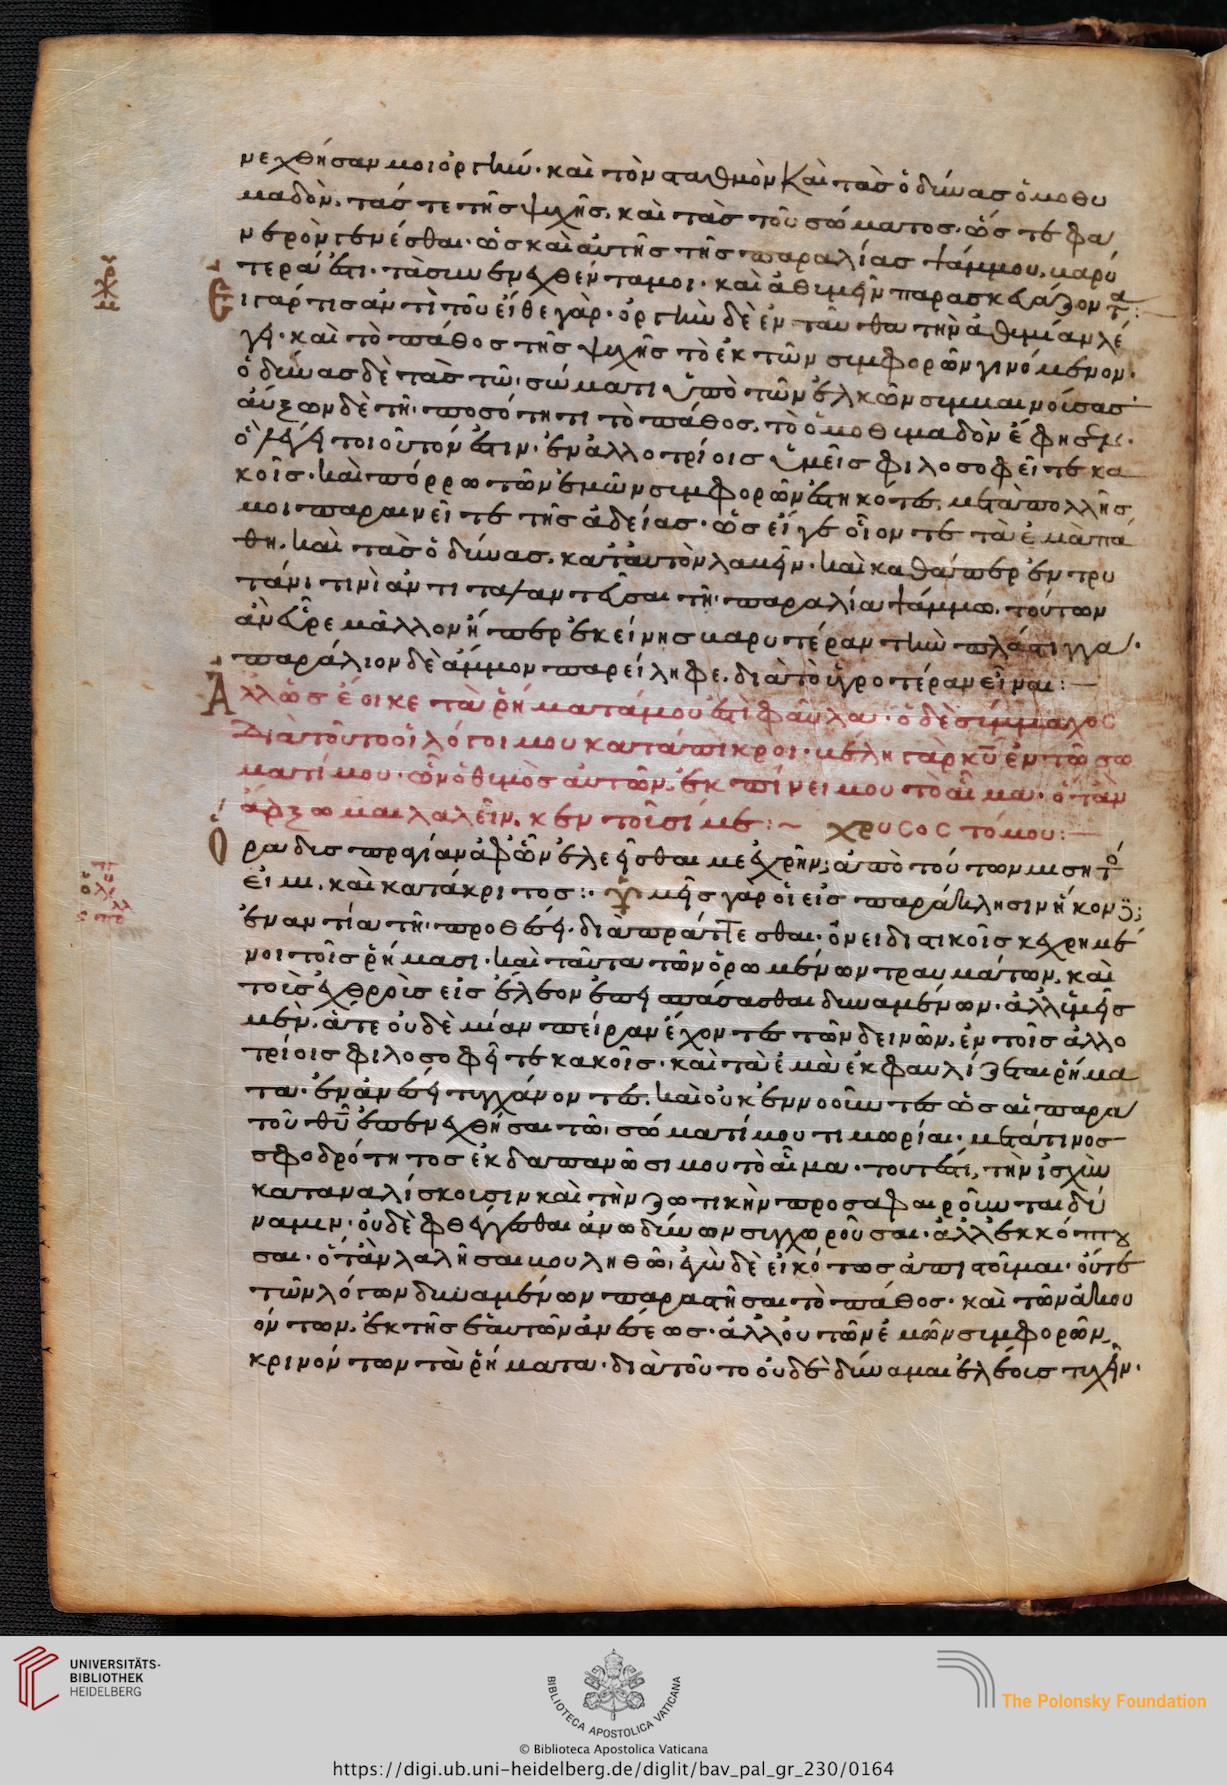 νεχθήσαν μοι ὀργὴν· καὶ τὸν σταθμὸν καὶ τὰς ὀδύνας ὁμοθυ
μαδὸν, τάς τε τῆς ψυχῆς, καὶ τὰς τοῦ σώματος· ὥστε φα
νερὸν γενέσθαι· ὡς καὶ αὐτῆς τῆς παραλίας ψάμμου, βαρύ
τερά ἐστι· τὰ συνενεχθέντα μοι· καὶ ἀθυμεῖν παρασκευάζοντα:
Εἰ γάρ τις ἀντὶ τοῦ εἴθε γάρ· ὀργὴν δὲ ἐνταῦθα τὴν ἀθυμίαν λέ
γει· καὶ τὸ πάθος τῆς ψυχῆς τὸ ἐκ τῶν συμφορῶν γινόμενον·
ὀδύνας δὲ τὰς τῶ σώματι ὑπὸ τῶν ἑλκῶν συμβαινούσας·
αὔξων δὲ τῆ ποσότητι τὸ πάθος, τὸ ὁμοθυμαδὸν ἔφησε·
ὃ λέγει τοιοῦτόν ἐστιν· ἐν ἀλλοτρίοις ὑμεῖς φιλοσοφεῖτε κα
κοῖς· καὶ πόρρω τῶν ἐμῶν συμφορῶν ἑστηκότες, μετὰ πολλῆς
μοι παραινεῖτε τῆς ἀδείας· ὡς εἴγε οἷόν τε τὰ ἐμὰ πά
θη, καὶ τὰς ὀδύνας, κατ' αὐτὸν λαβεῖν· καὶ καθάπερ ἐν τρυ
τάνη τινὶ ἀντιταλαντεῦσαι τῆ παραλία ψάμμω, τούτων
ἂν εὗρε μᾶλλον ἤπερ ἐκείνης βαρυτέραν τὴν πλάστιγγα·
παράλιον δὲ ἄμμον παρείληφε, διὰ τὸ ὑγροτέραν εἶναι:
Ἀλλ' ὡς ἔοικε τὰ ῥήματά μου ἐστὶ φαῦλα· ὁ δὲ σύμμαχος
Διὰ τοῦτο οἱ λόγοι μου κατάπικροι· βέλη γὰρ κυ ἐν τῶ σώ
ματί μου· ὧν ὁ θυμὸς αὐτῶν, ἐκπίνει μου τὸ αἷμα· ὅταν
ἄρξωμαι λαλεῖν, κεντοῦσί με: χρυσοστόμου:
Ὁρᾶ δι' ὧν ἐλεεῖσθαι με ἐχρῆν; ἀπὸ τούτων μισητός
εἰμι, καὶ κατάκριτος: ὑμεῖς γὰρ οἱ εἰς παράκλησιν ἥκοντες;
ἐναντία τῆ προθέσει διαπράττεσθαι· ὀνειδιστικοῖς κεχρημέ
νοι τοῖς ῥήμασι· καὶ ταῦτα τῶν ὁρωμένων τραυμάτων, καὶ
τοῖς ἐχθροῖς εἰς ἔλεον ἐπισπάσασθαι δυναμένων· ἀλλ' ὑμεῖς
μέν, ἅτε οὐδὲ μίαν πεῖραν ἔχοντες τῶν δεινῶν, ἐν τοῖς ἀλλο
τρίοις φιλοσοφεῖτε κακοῖς· καὶ τὰ ἐμὰ ἐκφαυλίζεται ῥήμα
τα· ἐν ἀνέσει τυγχάνοντες, καὶ οὐκ ἐννοοῦντες ὡς αἱ παρὰ
τοῦ θυ ἐπενεχθῆσαι τῶ σώματί μου τιμωρίαι· μετά τινος
σφοδρότητος ἐκδαπανῶσι μου τὸ αἷμα· τουτέστι, τὴν ἰσχὺν
καταναλίσκουσιν καὶ τὴν ζωτικὴν προσαφαιροῦνται δύ
ναμιν· οὐδὲ φθέγγεσθαι ἀνωδύνων συγχωροῦσαι· ἀλλ' ἐκκόπτου
σαι· ὅταν λαλῆσαι βουληθῶ, ἐγὼ δὲ εἰκότως ἀπιστοῦμαι· οὔτε
τῶν λόγων δυναμένων παραστῆσαι τὸ πάθος· καὶ τῶν ἀκου
όντων, ἐκ τῆς ἑαυτῶν ἀνέσεως· ἀλλ' οὐ τῶν ἐμῶν συμφορῶν,
κρινόντων τὰ ῥήματα· διὰ τοῦτο οὐδὲ δύναμαι ἐλέους τυχεῖν·
UNIVERSITÄTS-
BIBLIOTHEK
HEIDELBERG
BIBLIOTECA APOSTOLICA VATICANA
The Polonsky Foundation
© Biblioteca Apostolica Vaticana
https://digi.ub.uni-heidelberg.de/diglit/bav_pal_gr_230/0164